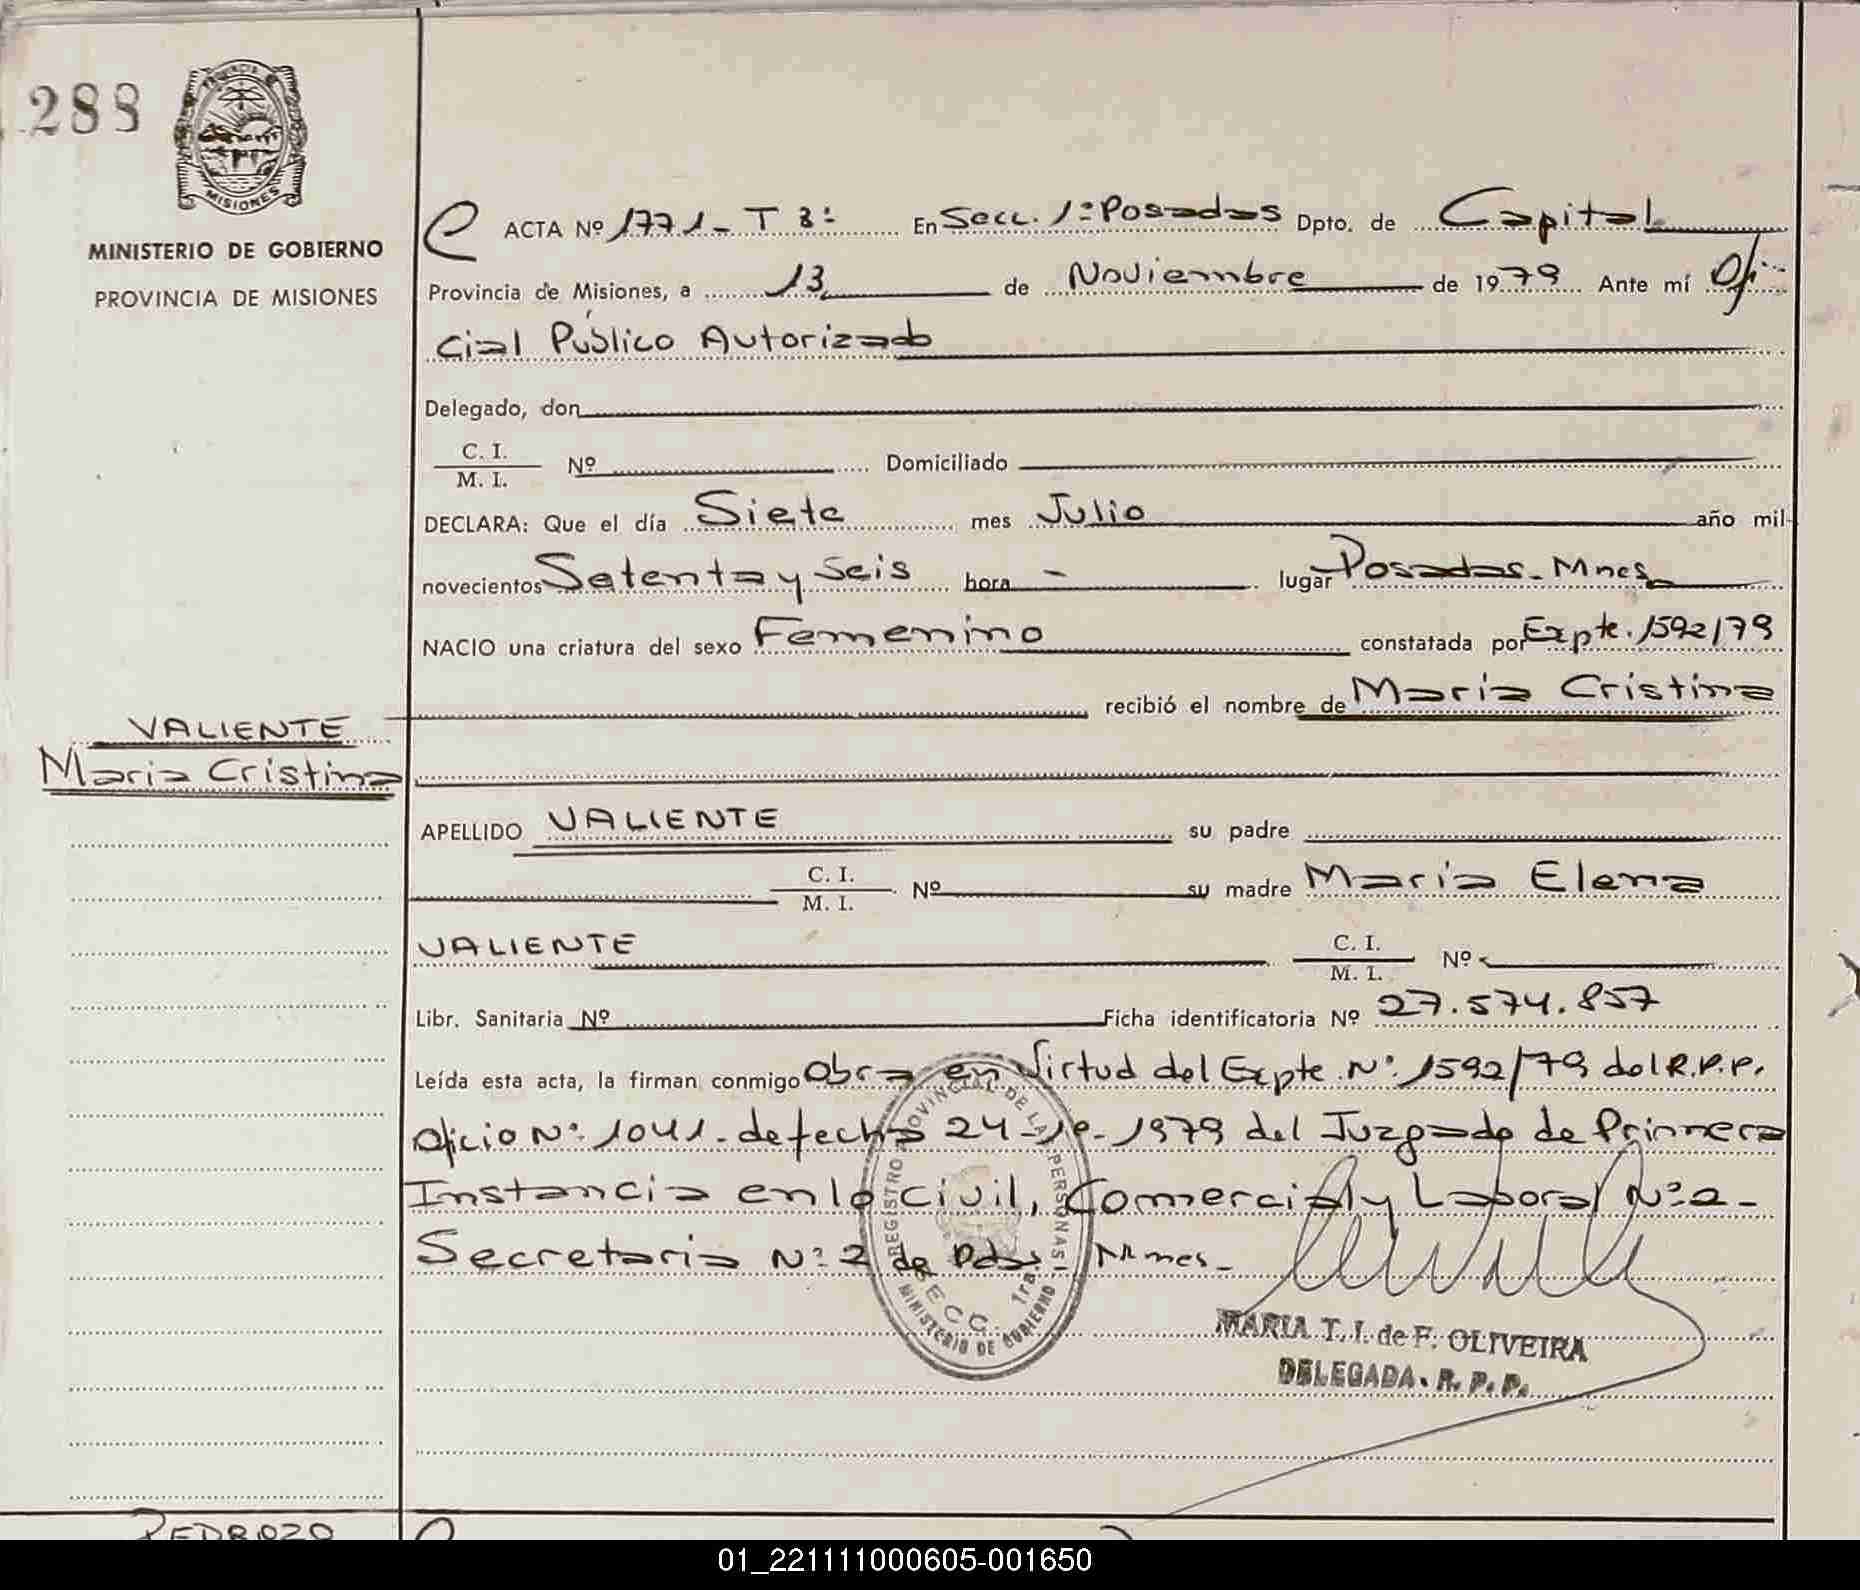 288
PROVINCIA DE
MISIONES
MINISTERIO DE GOBIERNO
PROVINCIA DE MISIONES
ACTA Nº 1771 - T 3º En Secc. 1º Posadas Dpto. de Capital
Provincia de Misiones, a 13 de Noviembre de 1979 Ante mí Ofi
cial Público Autorizado
Delegado, don
C. I.
M. I. Nº Domiciliado
DECLARA: Que el día Siete mes Julio año mil
novecientos Setenta y Seis hora - lugar Posadas - Mnes
NACIO una criatura del sexo Femenino constatada por Expte. 1592/79
recibió el nombre de Maria Cristina
VALIENTE
Maria Cristina
APELLIDO VALIENTE su padre
C. I.
M. I. Nº su madre María Elena
VALIENTE C. I.
M. I. Nº
Libr. Sanitaria Nº Ficha identificatoria Nº 27.574.857
Leída esta acta, la firman conmigo Obra en Virtud del Expte. Nº 1592/79 del R.P.P.
Oficio Nº 1041 - de fecha 24-10-1979 del Juzgado de Primera
Instancia en lo Civil, Comercial y Laboral Nº 2 -
Secretaria Nº 2 de Pdas. Mnes -
REGISTRO PROVINCIAL DE LAS PERSONAS
SECC. 1ra.
MINISTERIO DE GOBIERNO
MARIA T. I. de F. OLIVEIRA
DELEGADA - R. P. P.
PEDROZO
01_221111000605-001650